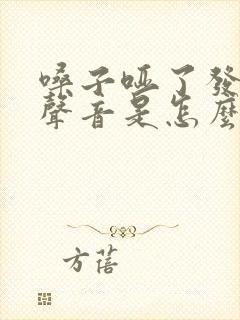 嗓子啞了發
聲音是怎麼
方蓓